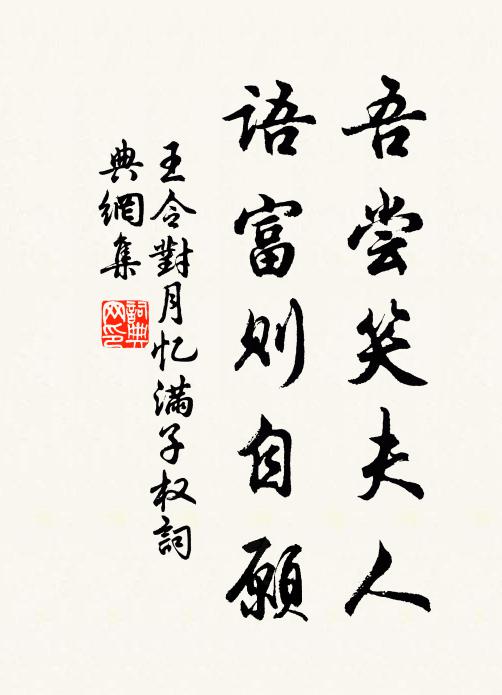 吾尝笑夫人
語富则自願
王令對月忆滿子权詞
典網集
詞典
网印